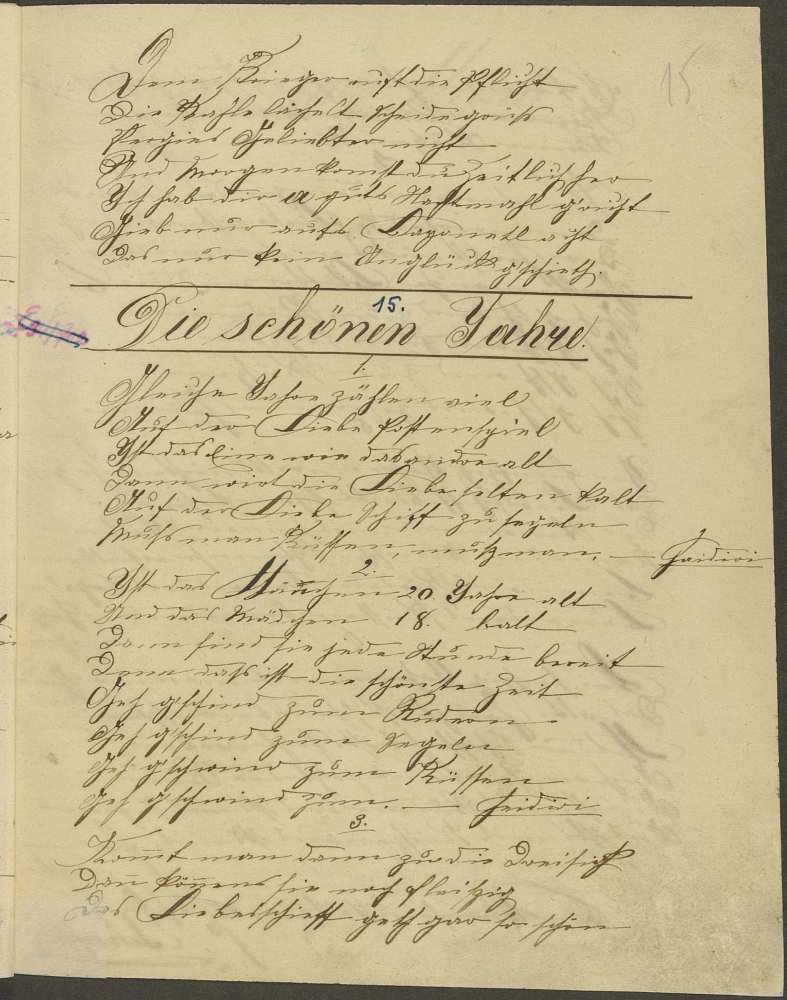 15
Dem Krieger ruft die Pflicht
Die Kathe lächelt Scheidegruß
Vergiss Geliebter nicht
Und Morgen komst du zeitlich her
Ich hab dir a guts Nachtmahl g'richt
Gieb nur aufs Bayonettl acht
Das nur kein Unglück g'schieht.
15.
Die schönen Jahre.
1.
Gleiche Jahre zählen viel
Auf der Liebe Possenspiel
Ist das Eine wie das andre alt
Dann wird die Liebe selten kalt
Auf der Liebe Schiff zu segeln
Muß man Küssen, muß man. — Haidiri
2.
Ist das Männchen 20 Jahre alt
Und das Mädchen 18. balt
Dann sind sie jede Stunde bereit
Denn daß ist die schönste Zeit
Geh g'schwind zum Rudern
Geh g'schwind zum Segeln
Geh g'schwind zum Küssen
Geh g'schwind zum. — Haidiri
3.
Kom̄t man dann zu die Dreisig
Dan̄ kön̄ens sie noch fleißig
Das Liebesschieff geht gar so schön